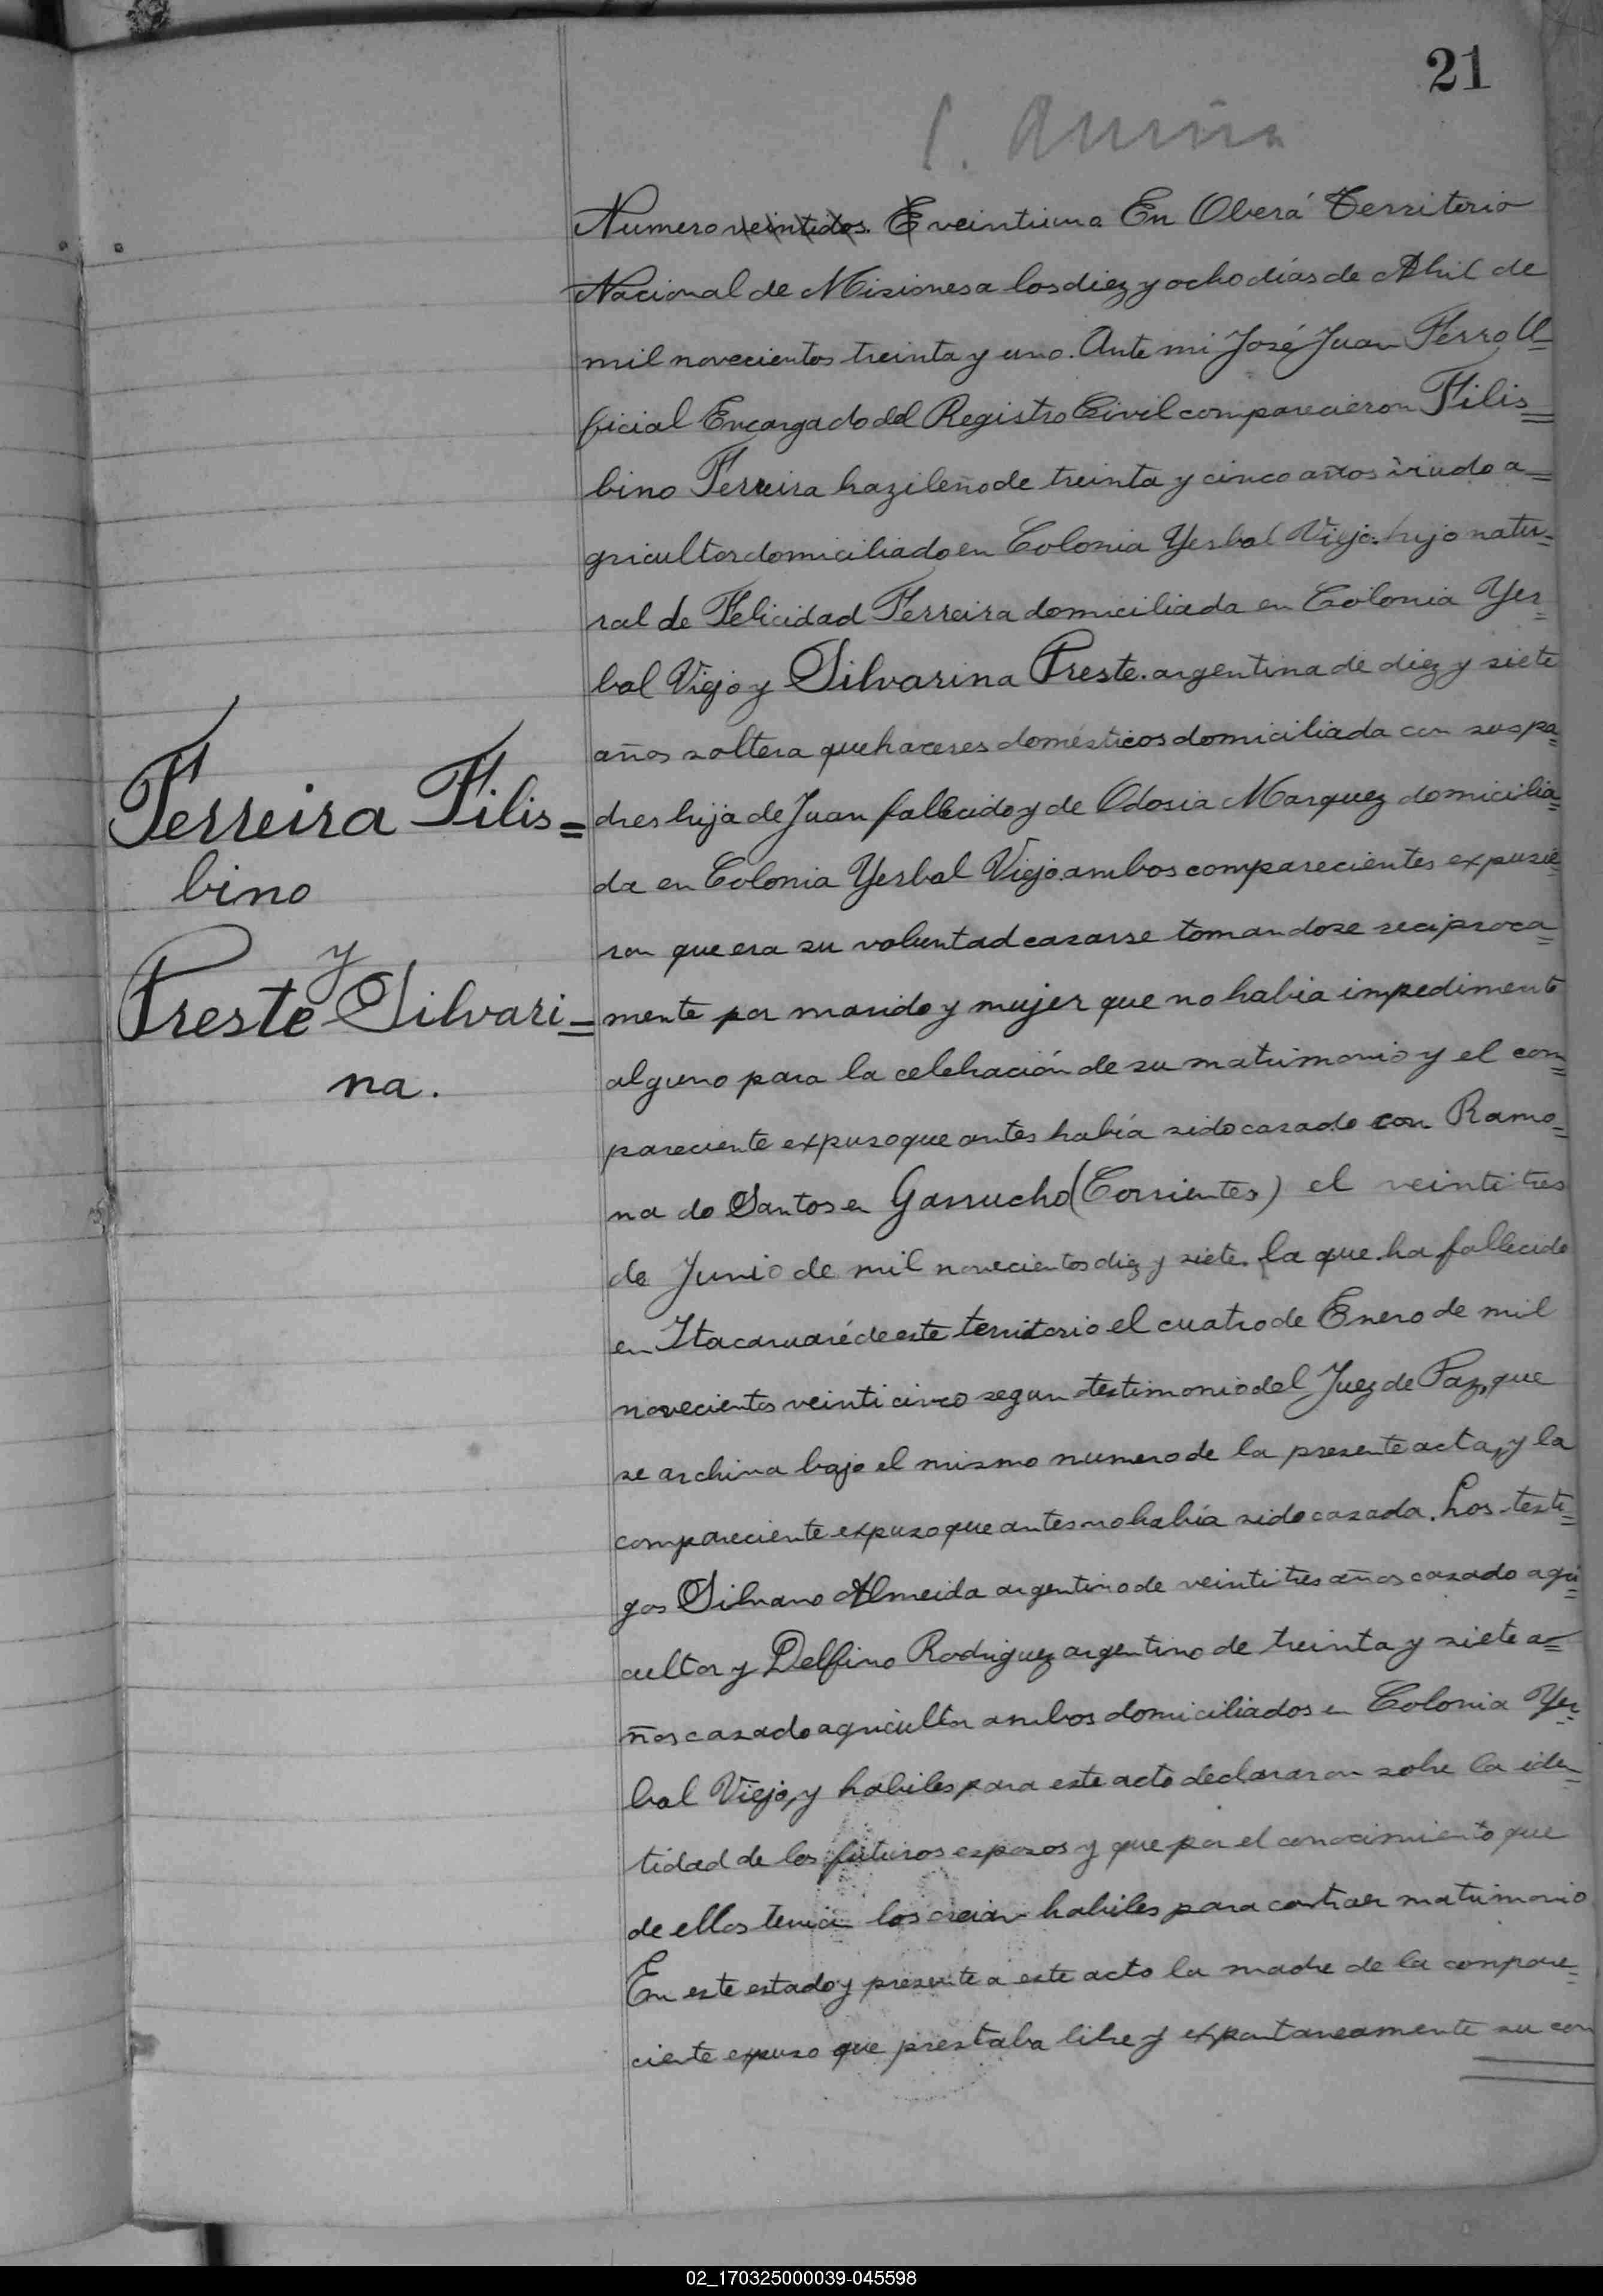 21
Numero veintidos. E veintiuna En Oberá Territorio
Nacional de Misiones a los diez y ocho días de Abril de
mil novecientos treinta y uno. Ante mi José Juan Ferro O=
ficial Encargado del Registro Civil comparecieron Filis=
bino Ferreira brazileño de treinta y cinco años viudo a=
gricultor domiciliado en Colonia Yerbal Viejo. hijo natu=
ral de Felicidad Ferreira domiciliada en Colonia Yer=
bal Viejo y Silvarina Preste. argentina de diez y siete
años soltera quehaceres domésticos domiciliada con sus pa=
Ferreira Filis=
bino
y
Preste Silvari=
na.
dres hija de Juan fallecido y de Odosia Marquez domicilia=
da en Colonia Yerbal Viejo. ambos comparecientes expusie=
ron que era su voluntad casarse tomandose reciproca=
mente por marido y mujer que no habia impedimento
alguno para la celebración de su matrimonio y el com=
pareciente expuso que antes había sido casado con Ramo=
na do Santos en Garrucho (Corrientes) el veintitres
de Junio de mil novecientos diez y siete. la que ha fallecido
en Itacaruaré de este territorio el cuatro de Enero de mil
novecientos veinticinco segun testimonio del Juez de Paz, que
se archiva bajo el mismo numero de la presente acta, y la
compareciente expuso que antes no había sido casada. Los testi=
gos Silvano Almeida argentino de veintitres años casado agri=
cultor y Delfino Rodriguez argentino de treinta y siete a=
ños casado agricultor ambos domiciliados en Colonia Yer=
bal Viejo, y habiles para este acto declararon sobre la iden=
tidad de los futuros esposos y que por el conocimiento que
de ellos tenia los creian habiles para contraer matrimonio
En este estado y presente a este acto la madre de la compare=
ciente expuso que prestaba libre y expontaneamente su con
02_170325000039-045598